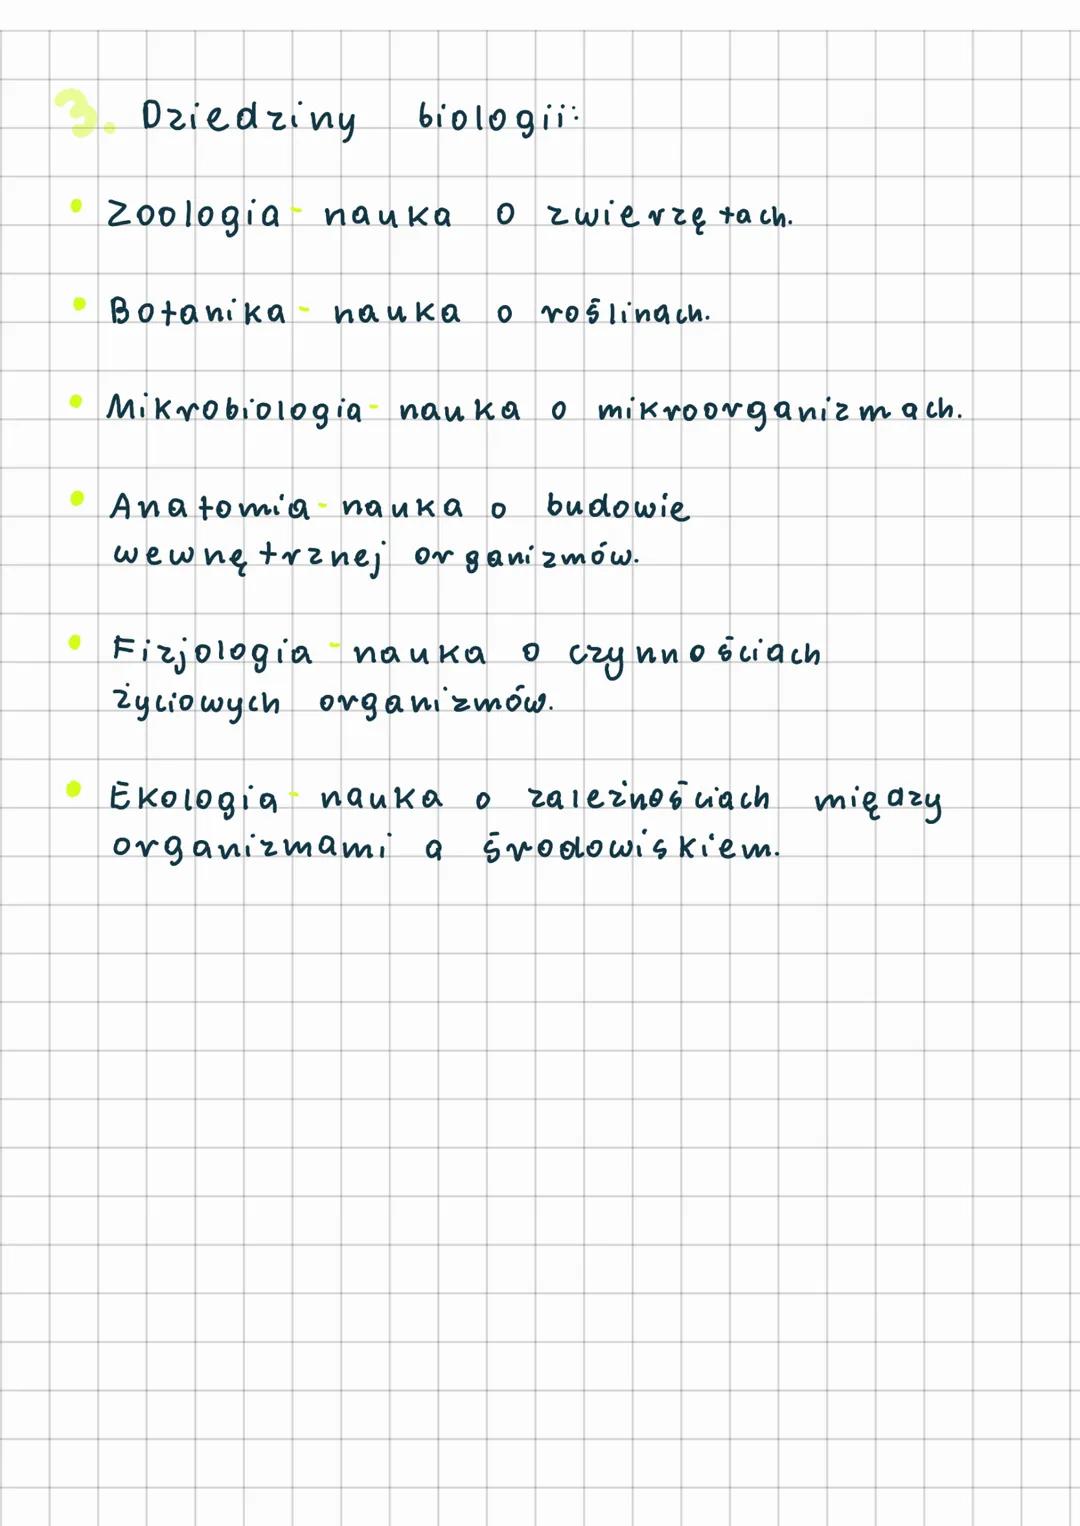 3. Dziedziny biologii:
• Zoologia - nauka o zwierzętach.
• Botanika - nauka o roślinach.
• Mikrobiologia - nauka o mikroorganizmach.
• Anatomia - nauka o budowie
wewnętrznej organizmów.
• Fizjologia - nauka o czynnościach
życiowych organizmów.
• Ekologia - nauka o zależnościach między
organizmami a środowiskiem.